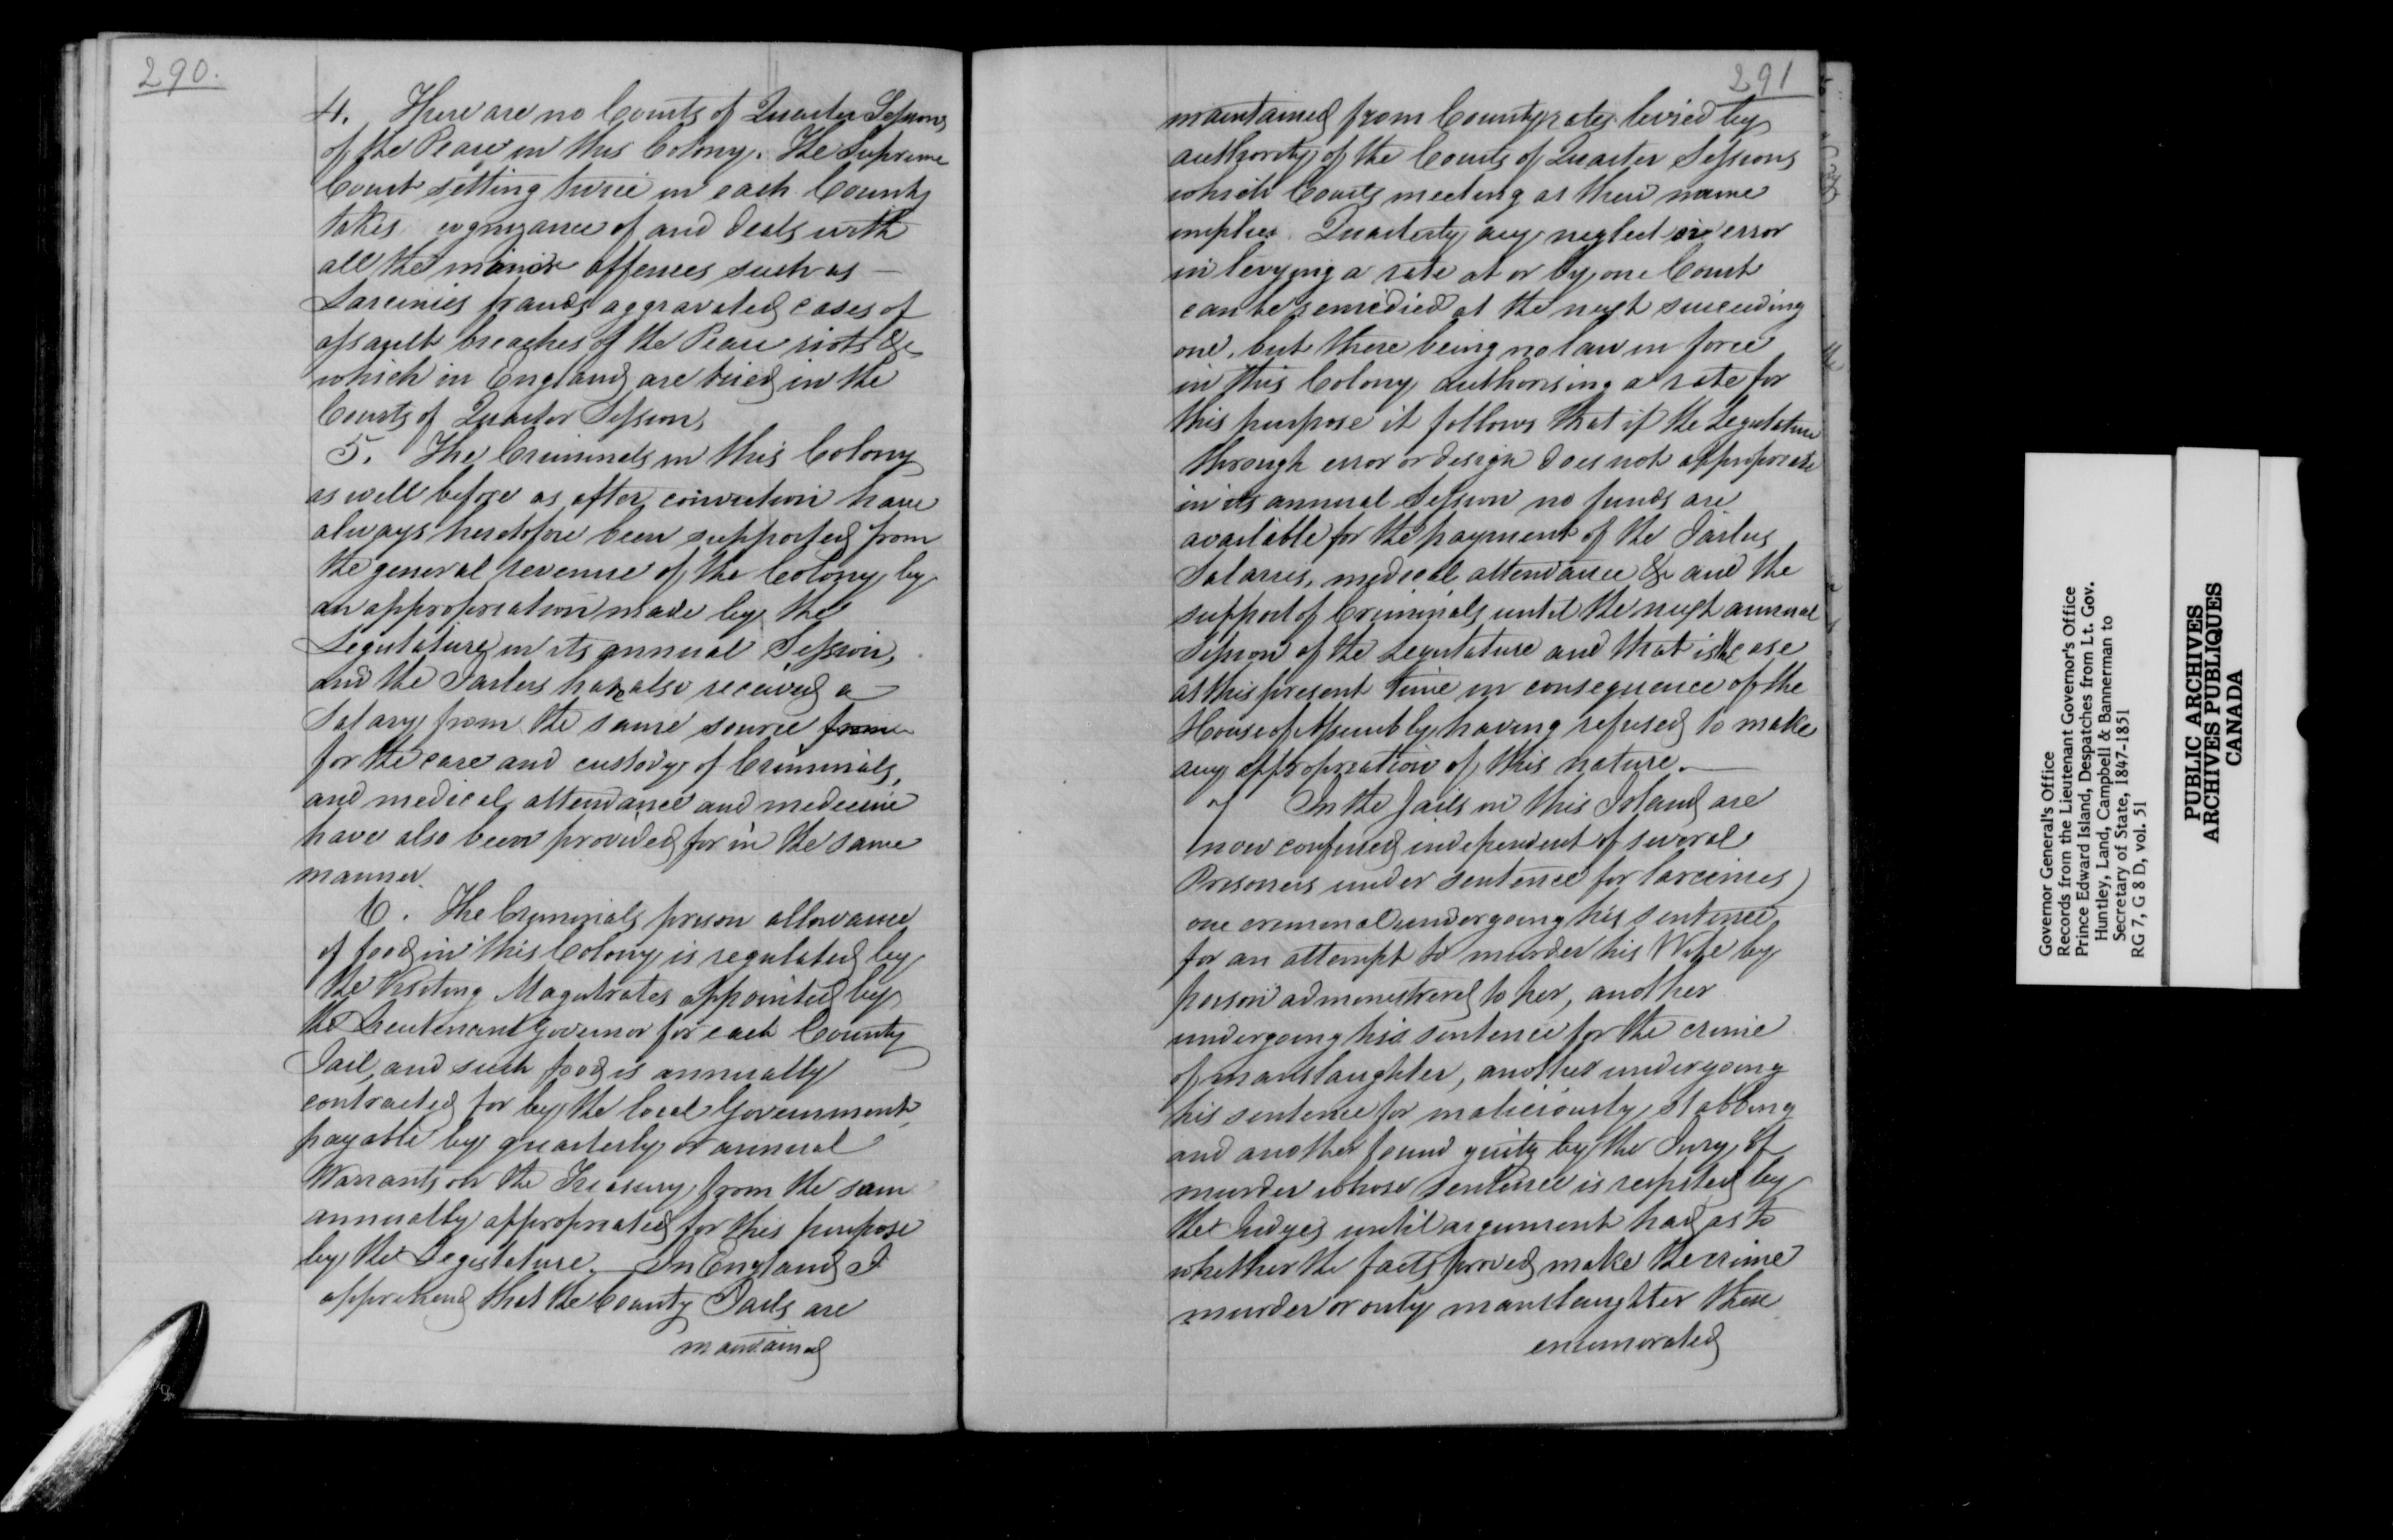 290.
4. There are no Courts of Quarter Sessions
of the Peace in this Colony. The Supreme
Court sitting twice in each County
takes cognizance of and deals with
all the minor offences such as —
Larcenies frauds aggravated cases of
assault breaches of the Peace riots &c
which in England are tried in the
Courts of Quarter Sessions
5. The Criminals in this Colony
as well before as after conviction have
always heretofore been supported from
the general revenue of the Colony by
an appropriation made by the
Legislature in its annual Session,
and the Jailers have also received a
Salary from the same source from
for the care and custody of Criminals,
and medical attendance and medicine
have also been provided for in the same
manner.
6. The Criminals prison allowance
of food in this Colony is regulated by
the Visiting Magistrates appointed by
the Lieutenant Governor for each County
Jail, and such food is annually
contracted for by the local Government,
payable by quarterly or annual
Warrants on the Treasury from the sum
annually appropriated for this purpose
by the Legislature. — In England I
apprehend that the County Jails are
maintained
291
maintained from County rates levied by
authority of the Courts of Quarter Sessions
which Courts meeting as their name
implies Quarterly any neglect or error
in levying a rate at or by one Court
can be remedied at the next succeeding
one, but there being no law in force
in this Colony authorising a rate for
this purpose it follows that if the Legislature
through error or design does not appropriate
in its annual Session no funds are
available for the payment of the Jailers
Salaries, medical attendance &c and the
support of Criminals until the next annual
Session of the Legislature and that is the case
at this present time in consequence of the
House of Assembly having refused to make
any appropriation of this nature. —
7 In the Jails in this Island are
now confined independent of several
Prisoners under sentence for larcenies)
one criminal undergoing his sentence,
for an attempt to murder his Wife by
poison administered to her, another
undergoing his sentence for the crime
of manslaughter, another undergoing
his sentence for maliciously stabbing
and another found guilty by the Jury of
murder whose sentence is respited by
the Judges until argument had as to
whether the facts proved make the crime
murder or only manslaughter these
enumerated
Governor General's Office
Records from the Lieutenant Governor's Office
Prince Edward Island, Despatches from Lt. Gov.
Huntley, Land, Campbell & Bannerman to
Secretary of State, 1847-1851
RG 7, G 8 D, vol. 51
PUBLIC ARCHIVES
ARCHIVES PUBLIQUES
CANADA